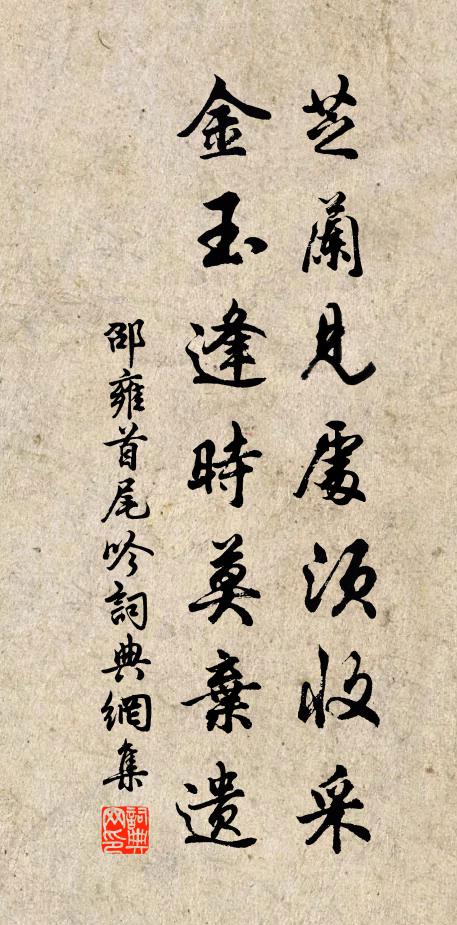 芝蘭見處須收采
金玉逢時莫棄遺
邵雍首尾吟詞典網集
詞典網印